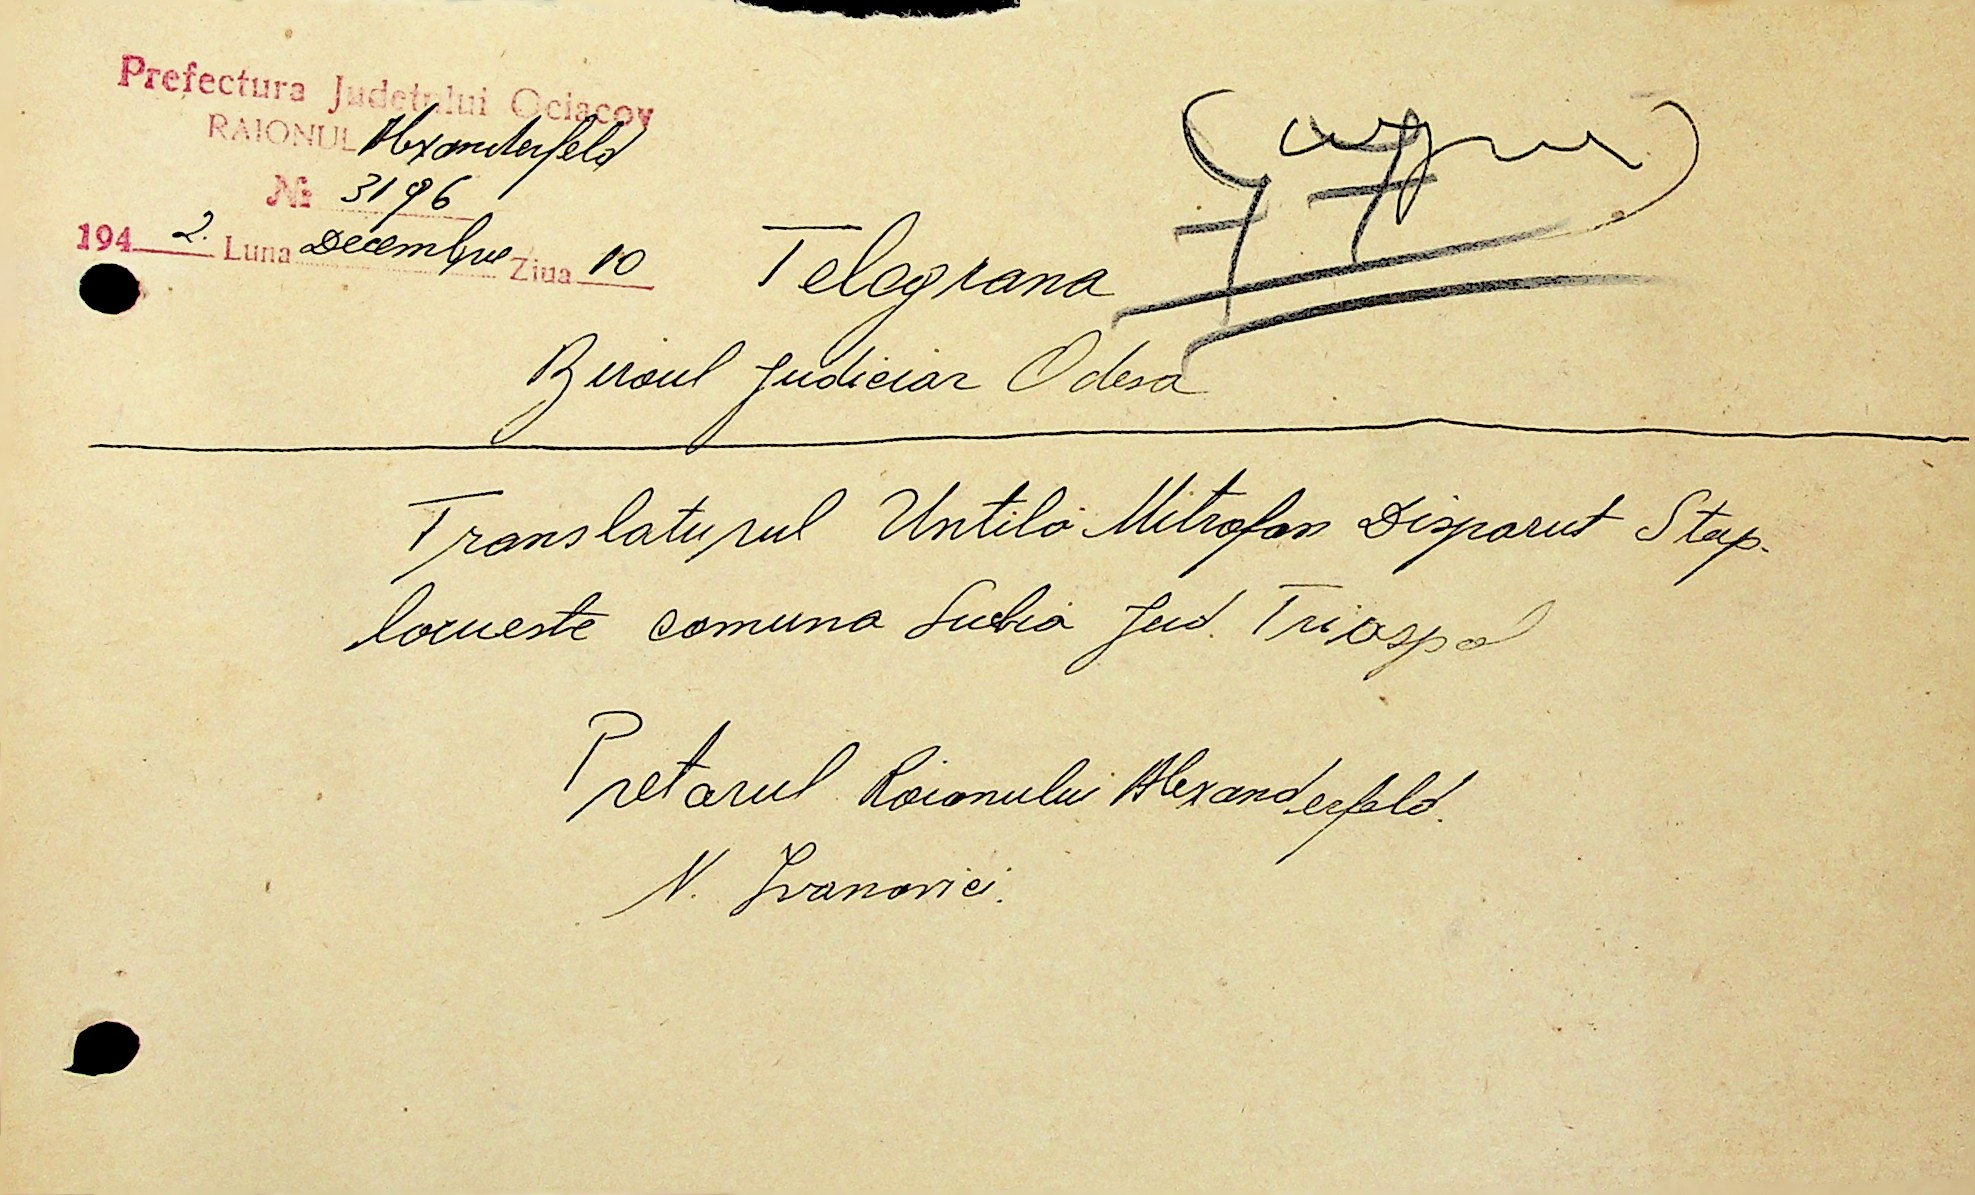 Prefectura Judetului Ociacov
RAIONUL Alexanderfeld
Nr 3196
1942. Luna Decembrie Ziua 10
Telegrana
Biroul Judiciar Odesa
Translatuṛul Untilo Mitrofan Disparut Stop.
locueste comuna jud. Triaspol
Pretorul Raionului Alexanderfeld.
N. Ivanovici.